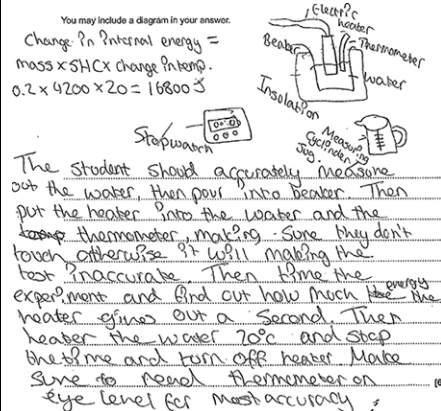 You may include a diagram in your answer.
Change in internal energy =
mass x SHC x change in temp.
0.2 x 4200 x 20 = 16800 J
Electric
heater
Thermometer
Beaker
water
Insolation
Stopwatch
Measuring
Cyclinder
Jug.
The student should accurately measure
out the water, then pour into beaker. Then
put the heater into the water and the
thermometer, making sure they don't
touch otherwise it will making the
test inaccurate. Then time the
experiment and find out how much the energy the
heater gives out a second. Then
heater the water 20°c and stop
the time and turn off heater. Make
Sure to read thermometer on
eye level for most accuracy